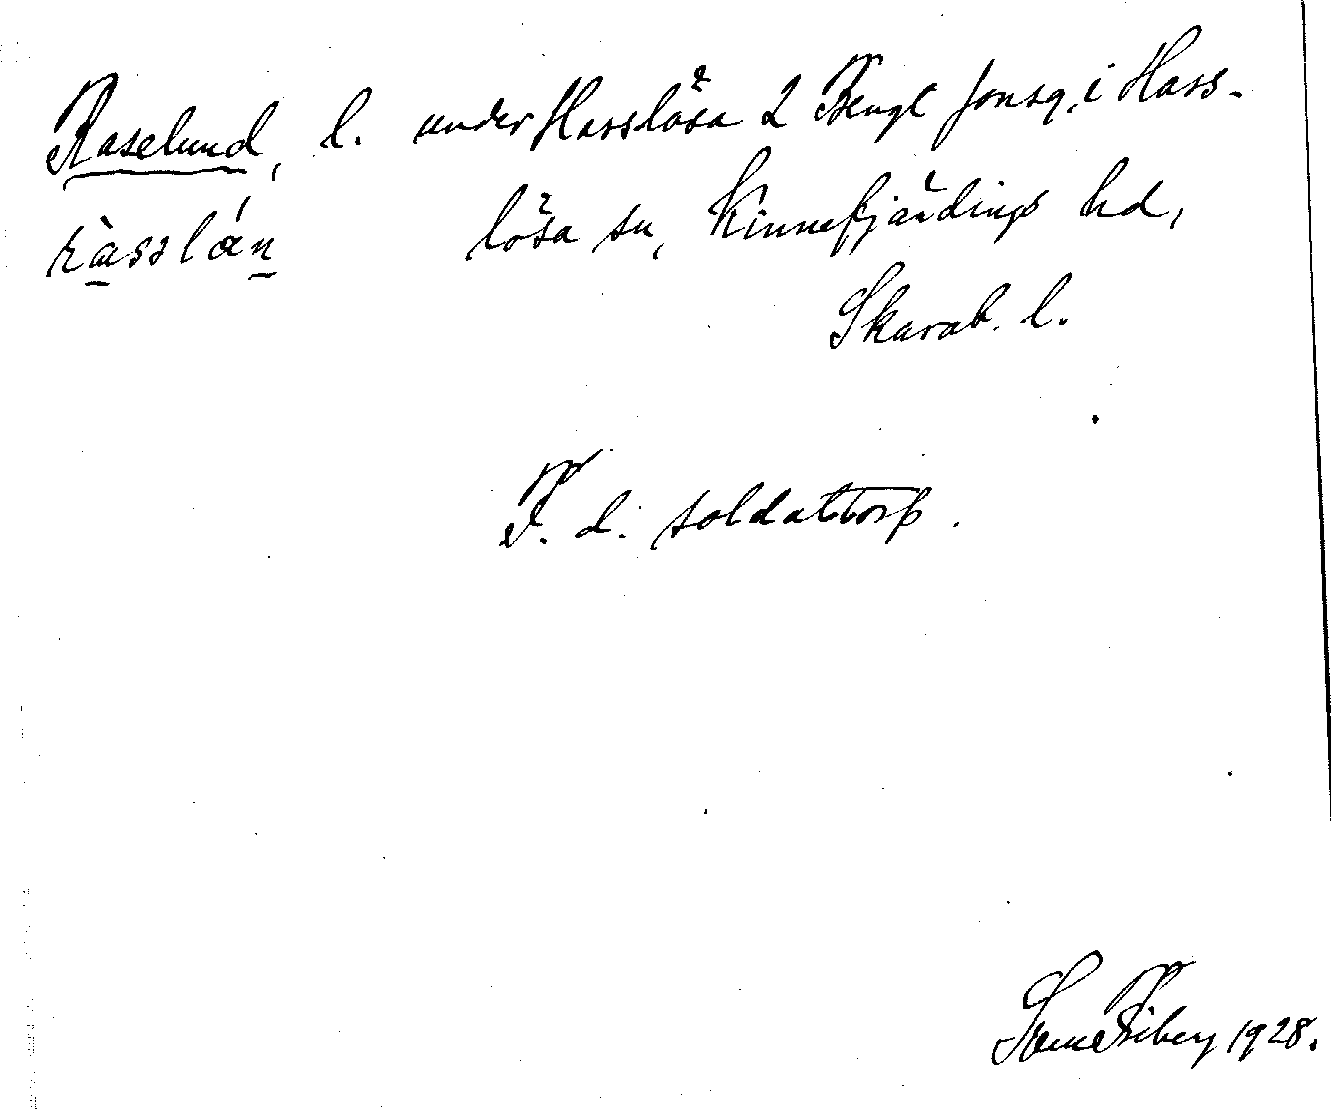 Raselund, l. under Hasslösa 2 Bengt Jonsg. i Hass-
ràsslán lösa sn, Kinnefjärdings hd,
Skarab. l.
F. d. soldattorp.
1928.